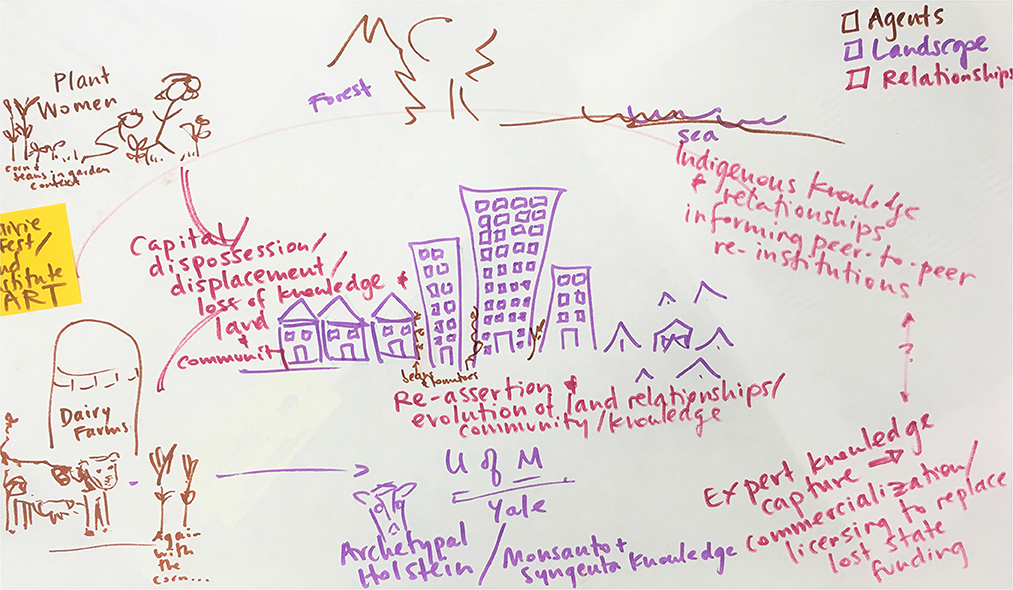 Agents
Landscape
Relationships
Plant
Women
corn &
beans in garden
context
Forest
sea
Indigenous knowledge
& relationships
informing peer-to-peer
re-institutions
ART
Capital/
dispossession/
displacement/
loss of knowledge &
land
&
community
beans & tomatoes
Re-assertion &
evolution of land relationships/
community/knowledge
?
Dairy
Farms
Again
with
the
corn...
U of M
Yale
Archetypal
Holstein
/ Monsanto +
Syngenta Knowledge
Expert knowledge
capture →
commercialization/
licensing to replace
lost state
funding